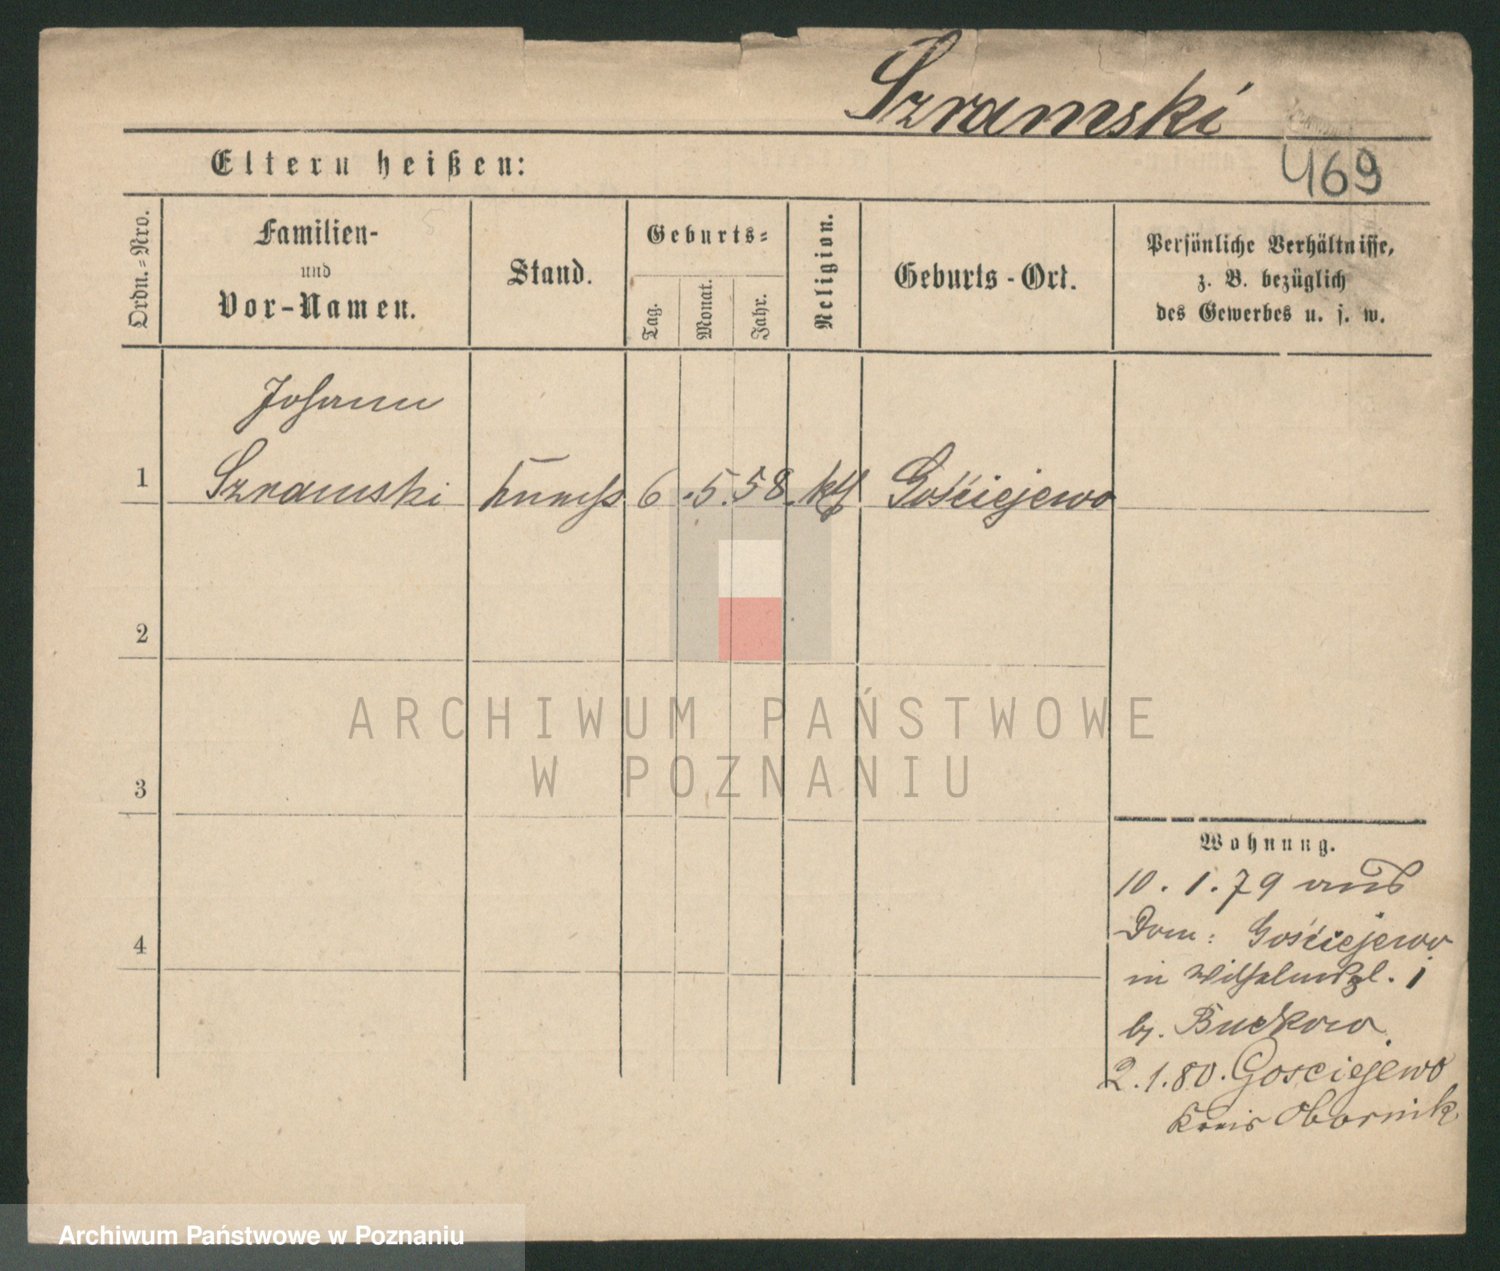 Szramski
469
Eltern heißen:
Ordn.-Nro.
Familien-
und
Vor-Namen.
Stand.
Geburts-
Tag.
Monat.
Jahr.
Religion.
Geburts-Ort.
Persönliche Verhältnisse,
z. B. bezüglich
des Gewerbes u. s. w.
Johann
1 Szramski 6. 5. 58. kth Gościejewo
2
3
4
Wohnung.
10. 1. 79 aus
Dom: Gościejewo
in Wilhelmspl. 1
b. Buckow
2. 1. 80. Gosciejewo
Kreis Obornik
ARCHIWUM PAŃSTWOWE
W POZNANIU
Archiwum Państwowe w Poznaniu